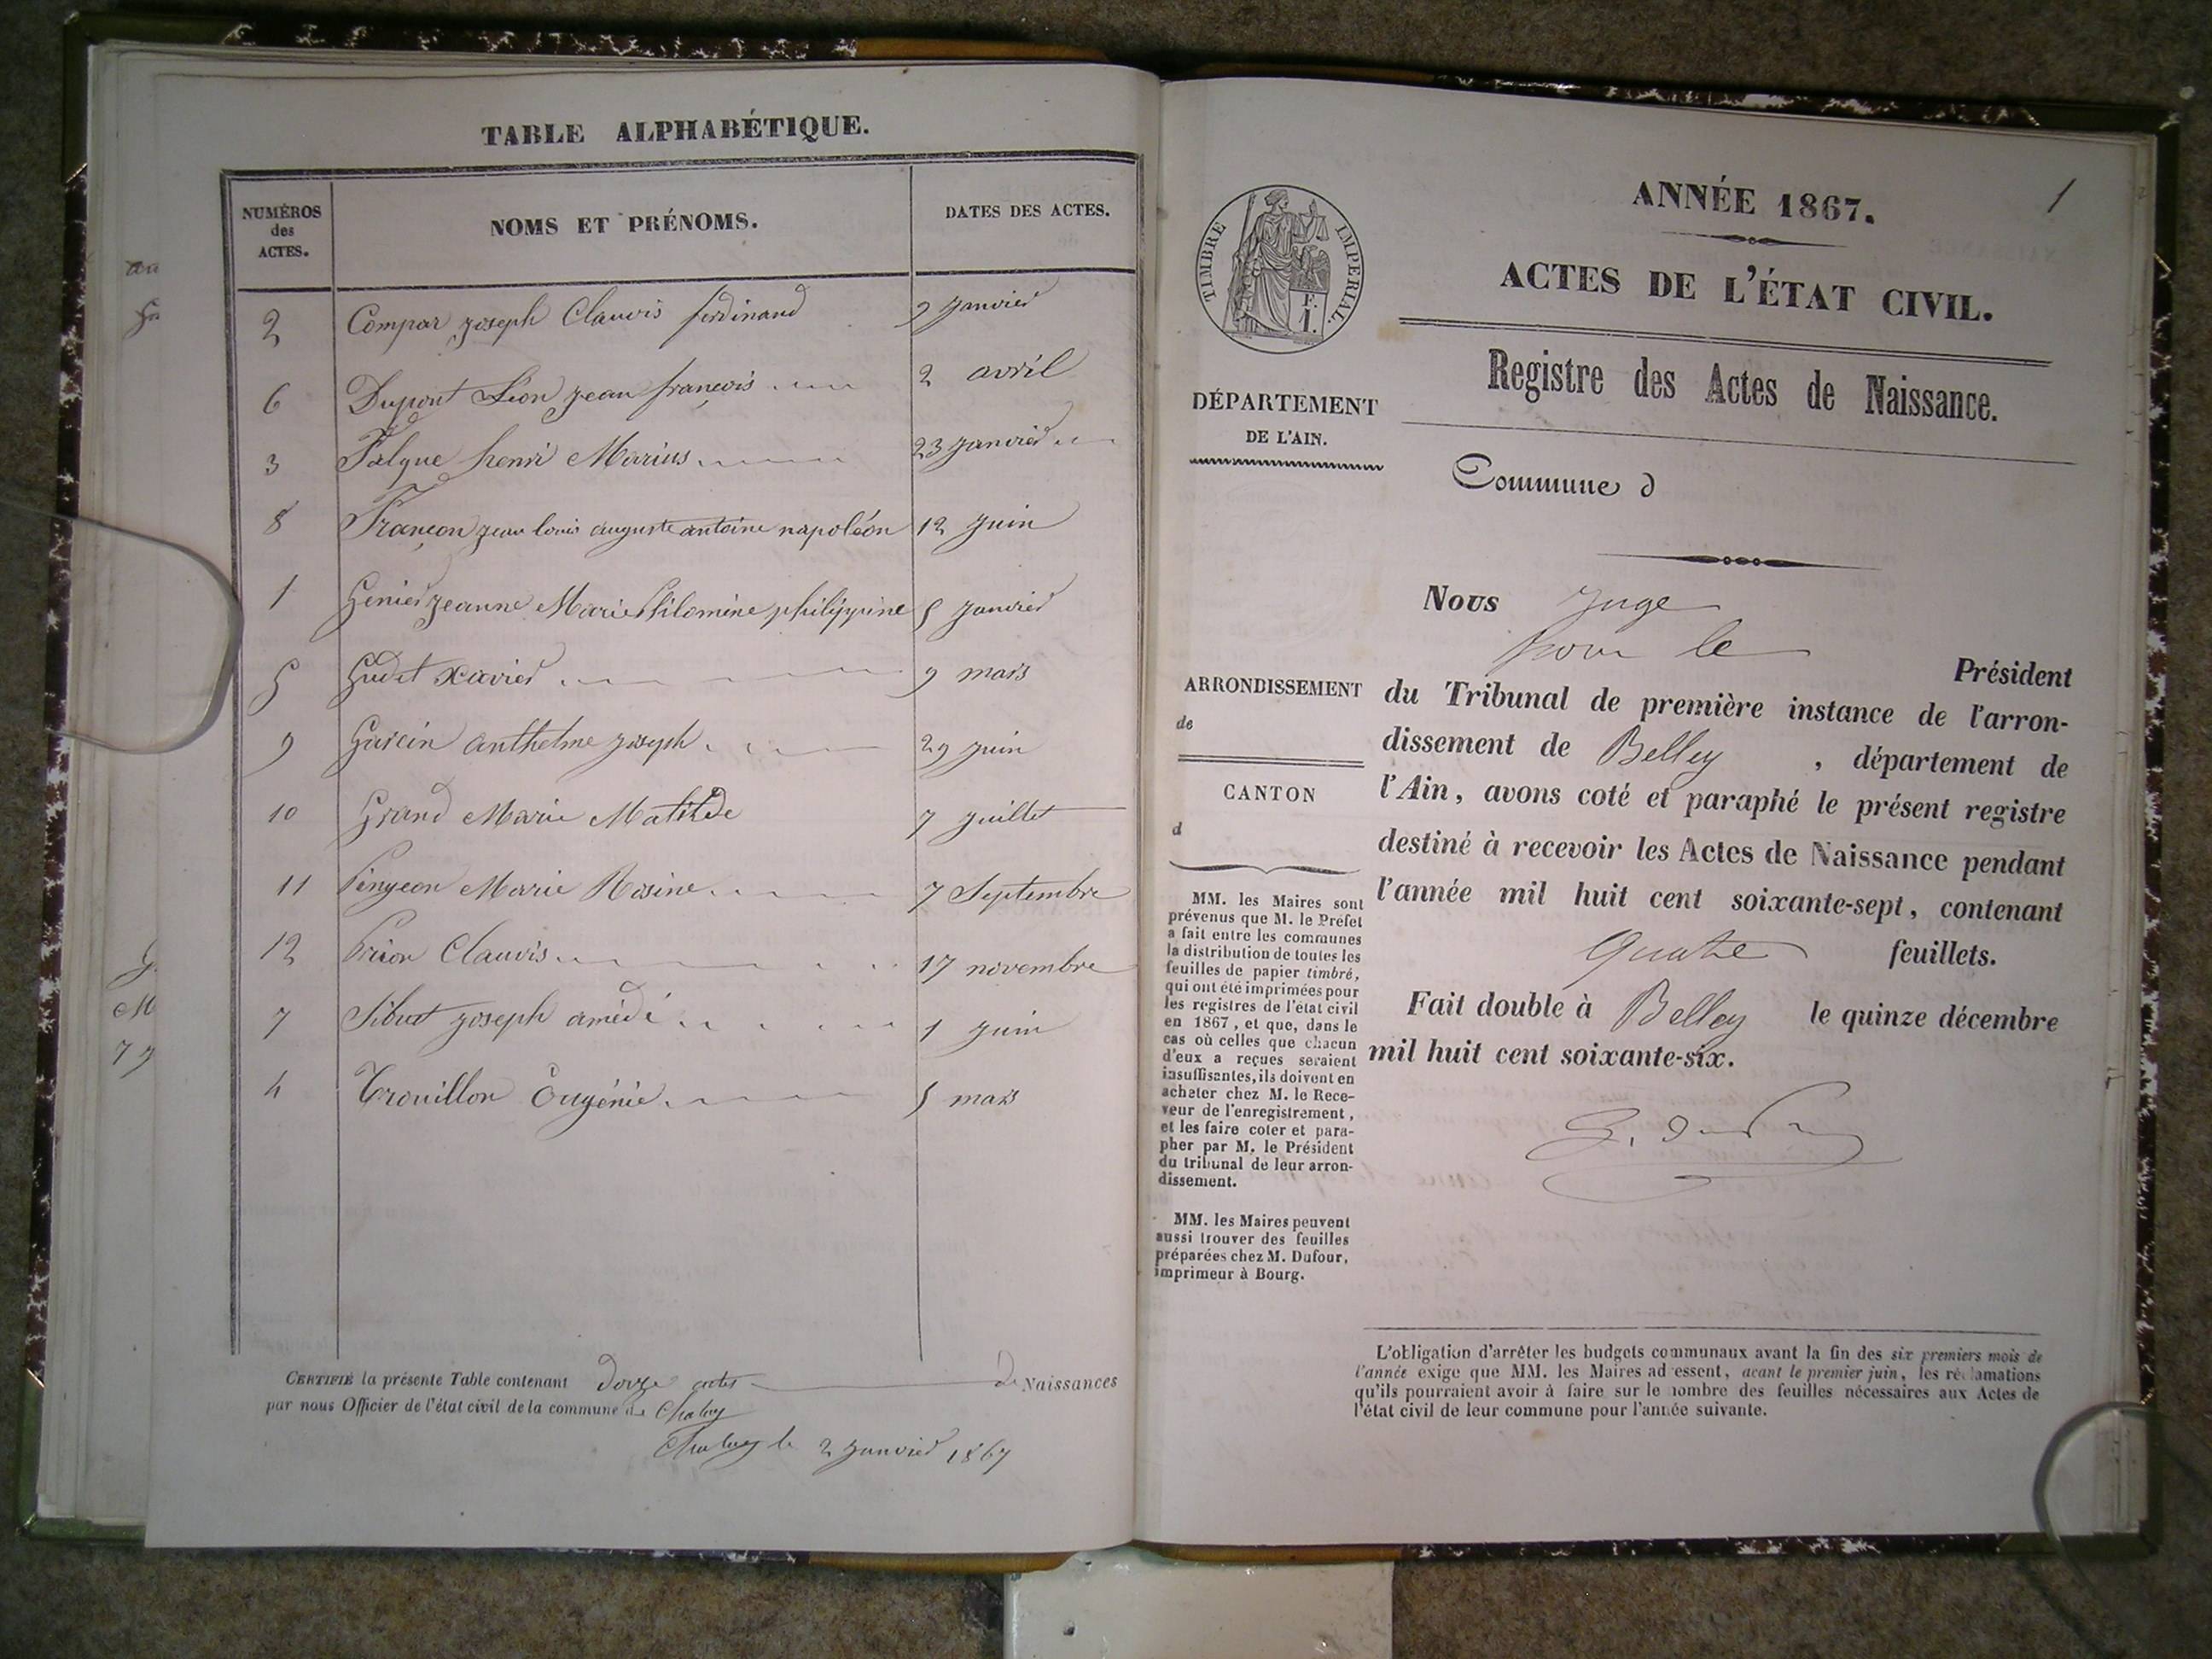 TABLE ALPHABÉTIQUE.
NUMÉROS des ACTES. NOMS ET PRÉNOMS. DATES DES ACTES.
2 Compar joseph Clauvis ferdinand 9 janvier
6 Dupont Léon jean françois 2 avril
3 Falque henri Marius 23 janvier
8 Françon jean louis auguste antoine napoléon 12 juin
1 Genier jeanne Marie Philomine philippine 5 janvier
5 Gudet xavier 9 mars
9 Garcin anthelme joseph 29 juin
10 Grand Marie Matilde 7 juillet
11 Pingeon Marie Rosine 7 Septembre
12 Prion Clauvis 17 novembre
7 Sibut joseph amédé 1 juin
4 Trouillon Eugénie 5 mars
CERTIFIÉ la présente Table contenant douze actes De Naissances
par nous Officier de l'état civil de la commune de Chaley
Chaley le 2 janvier 1867
1
ANNÉE 1867.
TIMBRE IMPERIAL.
1 F.
ACTES DE L'ÉTAT CIVIL.
Registre des Actes de Naissance.
DÉPARTEMENT
DE L'AIN.
Commune d
ARRONDISSEMENT
de
CANTON
d
MM. les Maires sont
prévenus que M. le Préfet
a fait entre les communes
la distribution de toutes les
feuilles de papier timbré,
qui ont été imprimées pour
les registres de l'état civil
en 1867, et que, dans le
cas où celles que chacun
d'eux a reçues seraient
insuffisantes, ils doivent en
acheter chez M. le Rece-
veur de l'enregistrement,
et les faire coter et para-
pher par M. le Président
du tribunal de leur arron-
dissement.
MM. les Maires peuvent
aussi trouver des feuilles
préparées chez M. Dufour,
imprimeur à Bourg.
Nous Juge
pour le
Président
du Tribunal de première instance de l'arron-
dissement de Belley, département de
l'Ain, avons coté et paraphé le présent registre
destiné à recevoir les Actes de Naissance pendant
l'année mil huit cent soixante-sept, contenant
quatre feuillets.
Fait double à Belley le quinze décembre
mil huit cent soixante-six.
L'obligation d'arrêter les budgets communaux avant la fin des six premiers mois de
l'année exige que MM. les Maires adressent, avant le premier juin, les réclamations
qu'ils pourraient avoir à faire sur le nombre des feuilles nécessaires aux Actes de
l'état civil de leur commune pour l'année suivante.